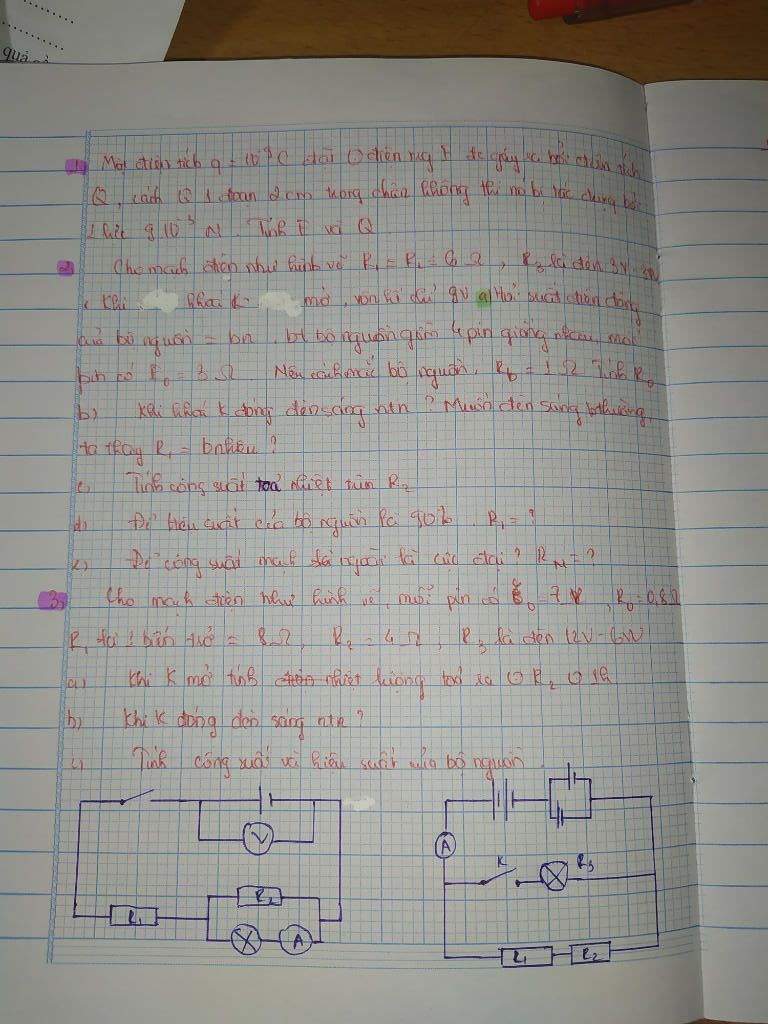 quả
1, Một điện tích q = 10⁻⁹ C đặt () điện trg đc gây ra bởi điện tích
Q, cách Q 1 đoạn 2 cm trong chân không thì nó bị tác dụng bởi
1 lực 9.10⁻³ N. Tính E và Q
2, Cho mạch điện như hình vẽ R₁ = R₂ = 6 Ω, R₃ là đèn 3V -
Khi khoá K mở, vôn kế chỉ 9V a) Hỏi suất điện động
của bộ nguồn = bn, bt bộ nguồn gồm 4 pin giống nhau, mỗi
pin có = 3 Ω Nêu cách mắc bộ nguồn. R_b = 1 Ω Tính
b) Khi khoá K đóng đèn sáng ntn? Muốn đèn sáng bthường,
ta thay R₁ = bnhiêu?
c, Tính công suất toả nhiệt trên R₂
d) Để hiệu suất của bộ nguồn là 90%. R₁ = ?
Để công suất mạch ngoài là cực đại? R_N = ?
3, Cho mạch điện như hình vẽ, mỗi pin có ξ₀ = 7 V, R₀ = 0,8 Ω
R₁ là 1 biến trở = 8 Ω, R₂ = 4 Ω, R₃ là đèn 12V - 6W
a) Khi K mở tính nhiệt lượng toả ra () R₂ () 1h
b) Khi K đóng đèn sáng ntn?
c) Tính công suất và hiệu suất của bộ nguồn.
V
R₂
R₁
A
A
K
R₃
R₁
R₂